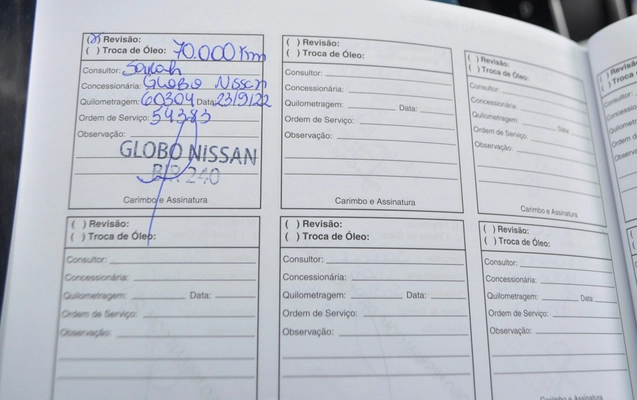 (x) Revisão:
( ) Troca de Óleo: 70.000 Km
Consultor: Sarah
Concessionária: Globo Nissan
Quilometragem: 60304 Data: 23/9/22
Ordem de Serviço: 54383
Observação:
GLOBO NISSAN
BR 240
Carimbo e Assinatura
( ) Revisão:
( ) Troca de Óleo:
Consultor:
Concessionária:
Quilometragem: Data:
Ordem de Serviço:
Observação:
Carimbo e Assinatura
( ) Revisão:
( ) Troca de Óleo:
Consultor:
Concessionária
Quilometragem: Data
Ordem de Serviço:
Observação:
Carimbo e Assinatura
( ) Revisão:
( ) Troca de Óleo:
Consultor:
Concessionária:
Quilometragem: Data:
Ordem de Serviço:
Observação:
( ) Revisão:
( ) Troca de Óleo:
Consultor:
Concessionária:
Quilometragem: Data:
Ordem de Serviço:
Observação:
( ) Revisão:
( ) Troca de Óleo:
Consultor:
Concessionária:
Quilometragem: Data:
Ordem de Serviço:
Observação: